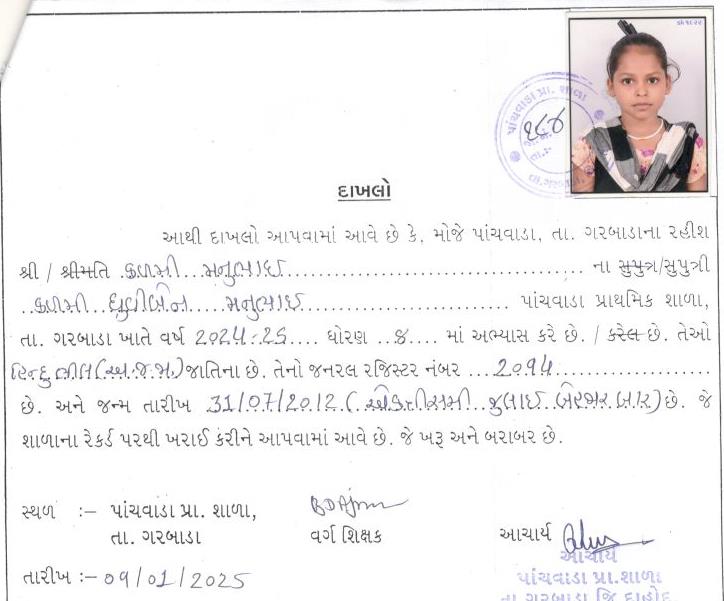 પાંચવાડા પ્રા. શાળા
૧૮૪
દાખલો
આથી દાખલો આપવામાં આવે છે કે, મોજે પાંચવાડા, તા. ગરબાડાના રહીશ
શ્રી / શ્રીમતિ કળમી મનુભાઇ ના સુપુત્ર/સુપુત્રી
કળમી મનુભાઇ પાંચવાડા પ્રાથમિક શાળા,
તા. ગરબાડા ખાતે વર્ષ 2024-25 ધોરણ ૪ માં અભ્યાસ કરે છે. / કરેલ છે. તેઓ
હિન્દુ ભીલ(અ.જ.જા.) જાતિના છે. તેનો જનરલ રજિસ્ટર નંબર 2094
છે. અને જન્મ તારીખ 31/07/2012 ( એકત્રીસમી જુલાઇ બેહજાર બાર) છે. જે
શાળાના રેકર્ડ પરથી ખરાઈ કરીને આપવામાં આવે છે. જે ખરૂ અને બરાબર છે.
સ્થળ :- પાંચવાડા પ્રા. શાળા, વર્ગ શિક્ષક આચાર્ય
તા. ગરબાડા આચાર્ય
તારીખ :- 09/01/2025 પાંચવાડા પ્રા.શાળા
તા ગરબાડા જિ દાહોદ.